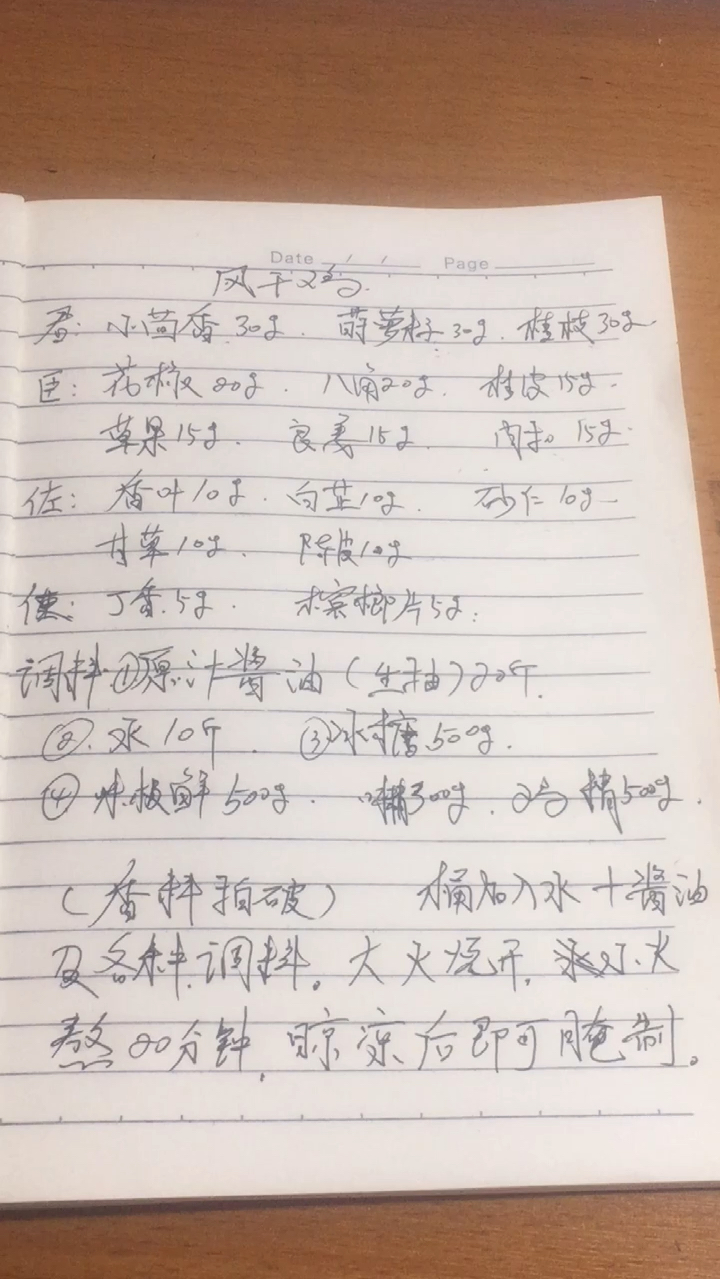 Date / / Page
风干鸡.
君: 小茴香 30g. 莳萝籽 30g. 桂枝 30g.
臣: 花椒 20g. 八角 20g. 桂皮 15g.
草果 15g. 良姜 15g. 肉扣 15g.
佐: 香叶 10g. 白芷 10g. 砂仁 10g
甘草 10g. 陈皮 10g
使: 丁香. 5g. 木槟榔片 5g.
调料: ①原汁酱油 (生抽) 20斤.
②. 水 10斤. ③冰糖 500g.
④ 味极鲜 500g. 味精 500g. 鸡精 500g.
(香料拍破) 桶加入水十酱油
及各料.调料。大火烧开, 小火
熬 20分钟, 晾凉后即可腌制。